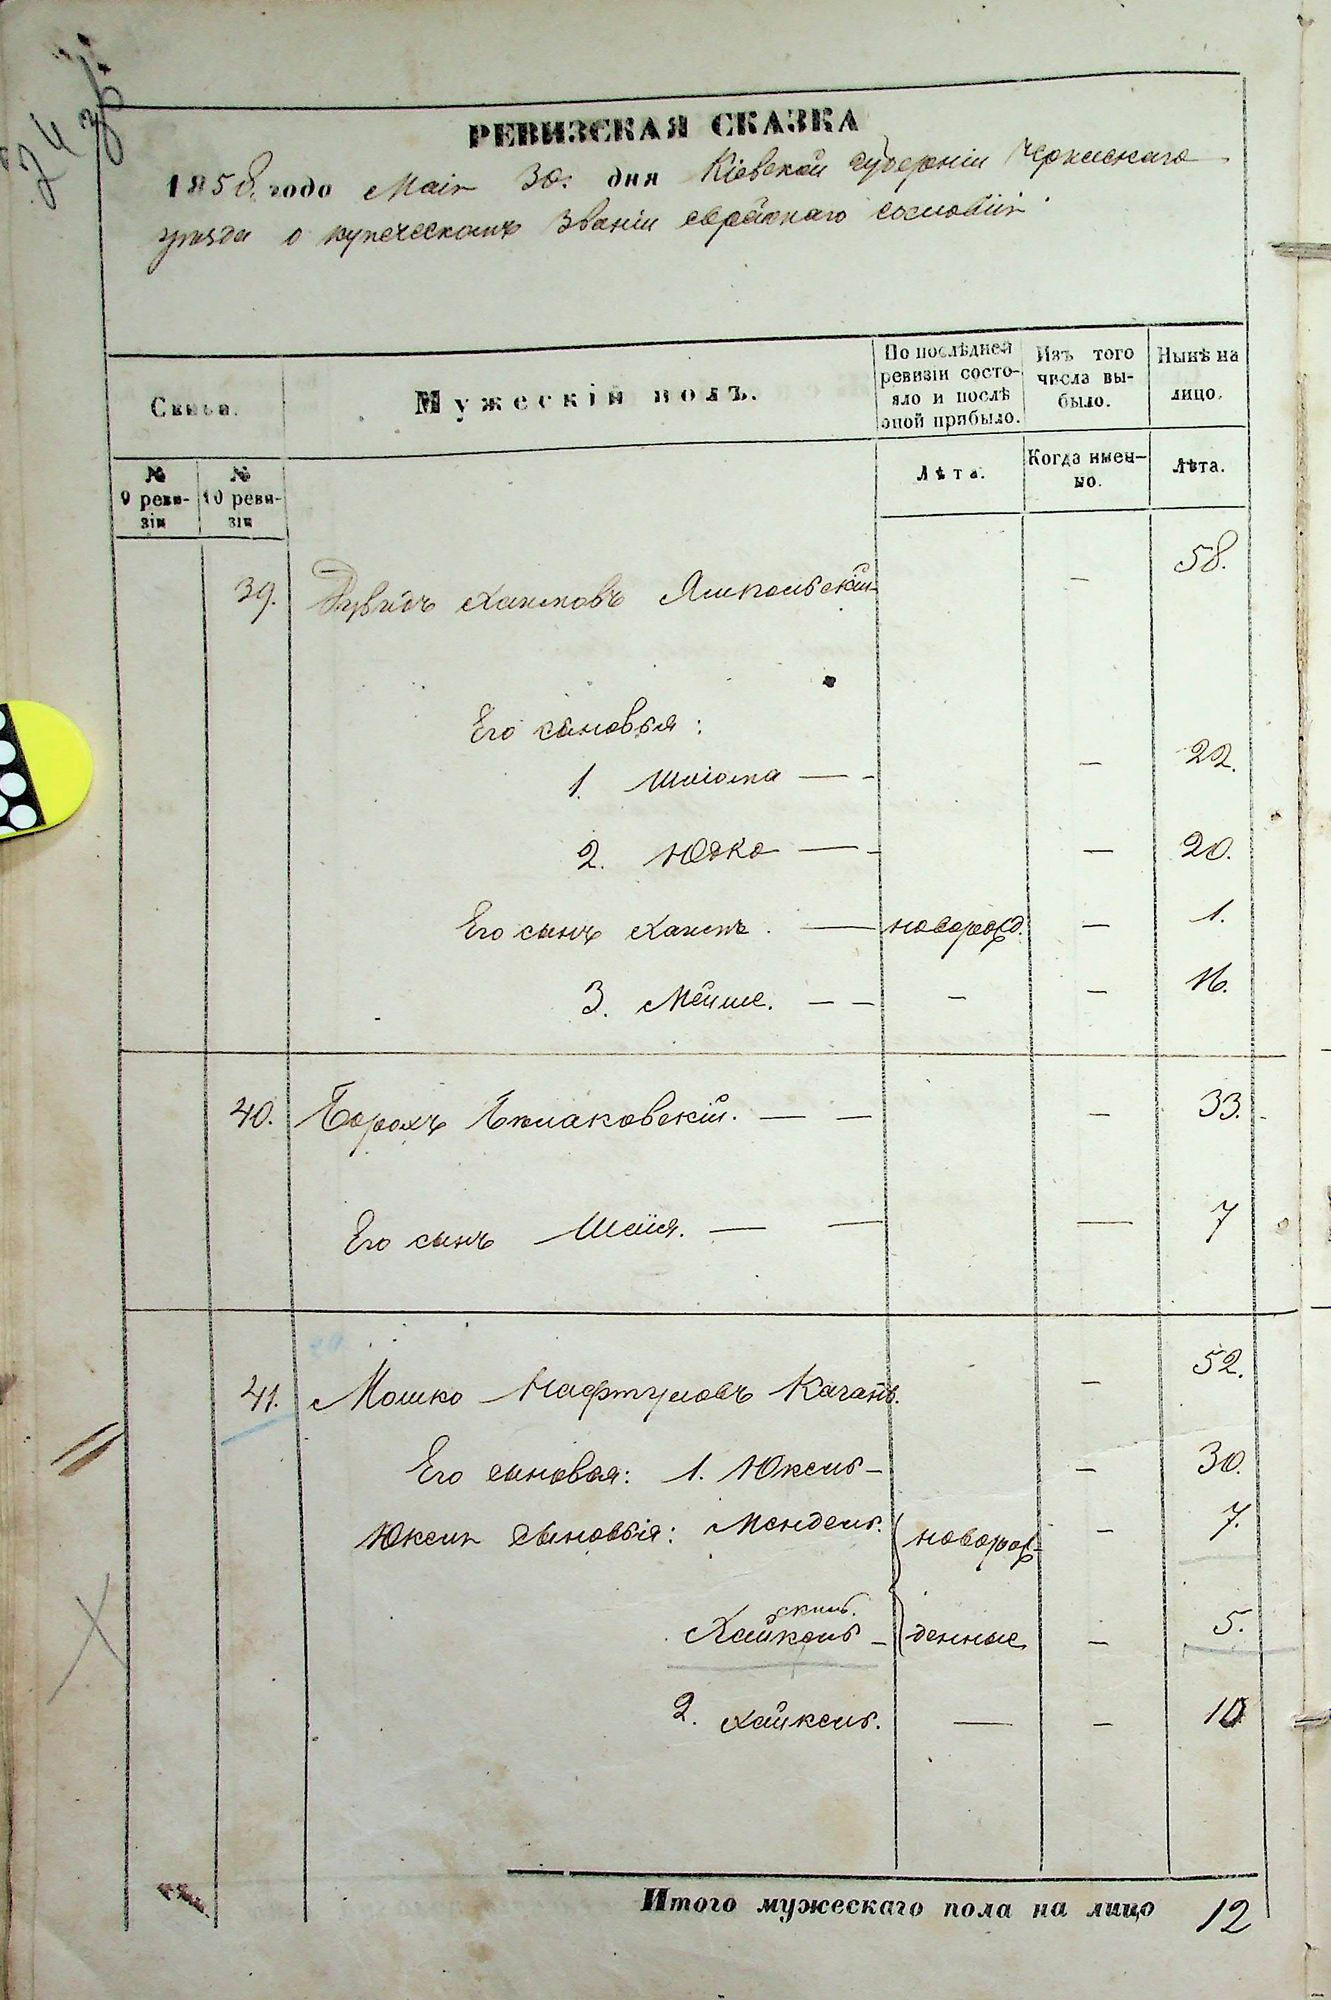 24
РЕВИЗСКАЯ СКАЗКА
1858. года Маія 30. дня Кіевской губерніи Черкаскаго
уезда о купеческомъ званіи еврейскаго сословія
Семьи.
Мужескій полъ.
По послѣдней ревизіи состояло и послѣ оной прибыло.
Изъ того числа выбыло.
Нынѣ на лицо.
№ 9 ревизіи
№ 10 ревизіи
Лѣта.
Когда именно.
Лѣта.
39. Дувидъ Хаимовъ Ямпольскій — 58.
Его сыновья:
1. Шліома — - — 22.
2. Юдко — - — 20.
Его сынъ Хаимъ. — новорожд. — 1.
3. Мейше. — — — — 16.
40. Борохъ Бжлаковскій. — — — 33.
Его сынъ Шаія. — — — 7
41. Мошко Нафтуловъ Каганъ. — 52.
Его сыновья: 1. Юксиль — — 30.
Юксиля сыновья: Мендель. новорож- — 7.
скиль.
Хайкель — денные — 5.
2. Хайкель. — — 10
Итого мужескаго пола на лицо 12